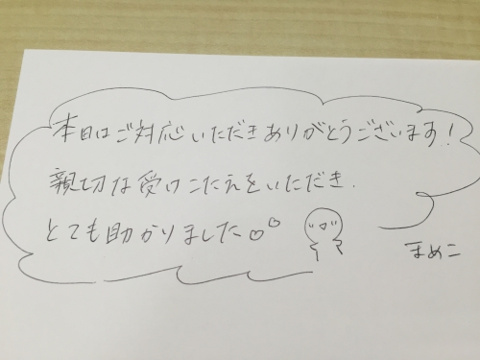 本日はご対応いただきありがとうございます!
親切な受けこたえをいただき.
とても助かりました♡♡
まめこ